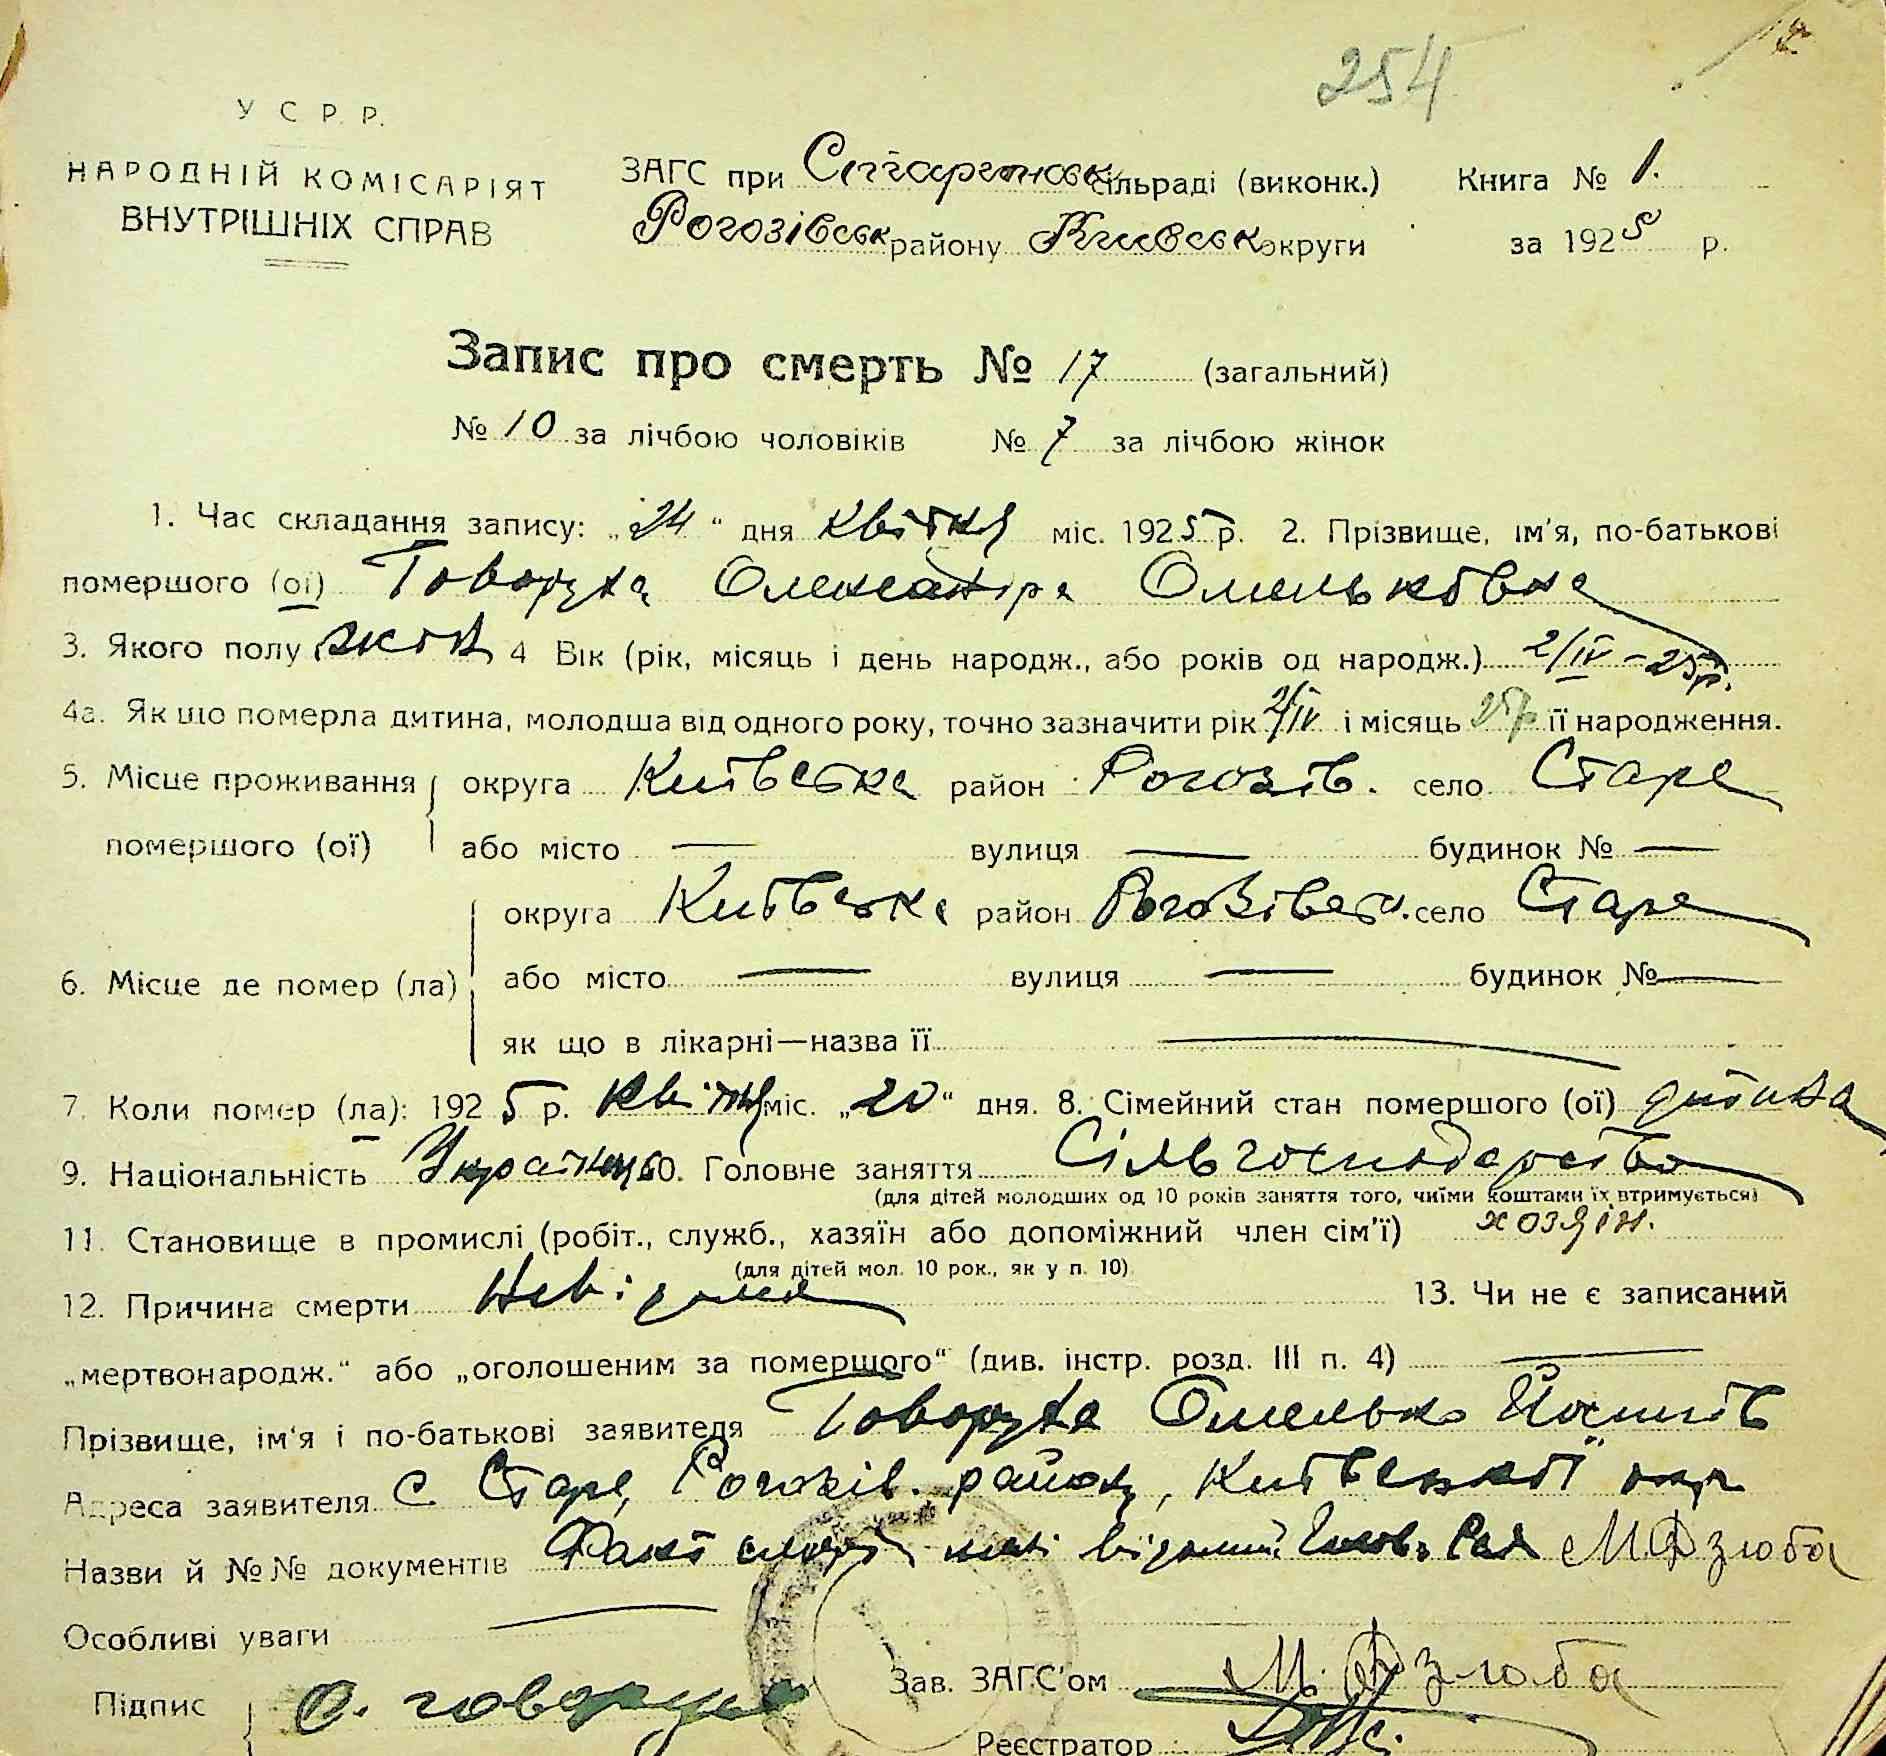 254
У С Р. Р.
НАРОДНІЙ КОМІСАРІЯТ
ВНУТРІШНІХ СПРАВ
ЗАГС при сільраді (виконк.) Книга № 1.
Рогозівськ району Київськ округи за 1925 р.
Запис про смерть № 17 (загальний)
№ 10 за лічбою чоловіків № 7 за лічбою жінок
1. Час складання запису: „24“ дня квітня міс. 1925 р. 2. Прізвище, ім'я, по-батькові
помершого (ої) Говоруха Олександра Омельковна
3. Якого полу жін 4 Вік (рік, місяць і день народж., або років од народж.) 2/IV – 25р.
4а. Як що померла дитина, молодша від одного року, точно зазначити рік 2/IV і місяць 25р її народження.
5. Місце проживання округа Київська район Рогозів. село Старе
помершого (ої) або місто — вулиця — будинок № —
округа Київська район Рогозівськ. село Старе
6. Місце де помер (ла) або місто — вулиця — будинок № —
як що в лікарні—назва її —
7. Коли помер (ла): 1925 р. квітня міс. „20“ дня. 8. Сімейний стан помершого (ої) дитина
9. Національність 10. Головне заняття Сільгосподарство
(для дітей молодших од 10 років заняття того, чиїми коштами їх втримується)
11. Становище в промислі (робіт., служб., хазяїн або допоміжний член сім'ї) хозяін.
(для дітей мол. 10 рок., як у п. 10)
12. Причина смерти Невідома 13. Чи не є записаний
„мертвонародж.“ або „оголошеним за померщого“ (див. інстр. розд. III п. 4) —
Прізвище, ім'я і по-батькові заявителя Говоруха Омелько
Адреса заявителя с Старе, Рогозів. району, Київської окр
Назви й №№ документів Факт смерті мені відомий. Голов. М. Дзюба
Особливі уваги —
Підпис О. Говоруха Зав. ЗАГС'ом М. Дзюба
Реєстратор